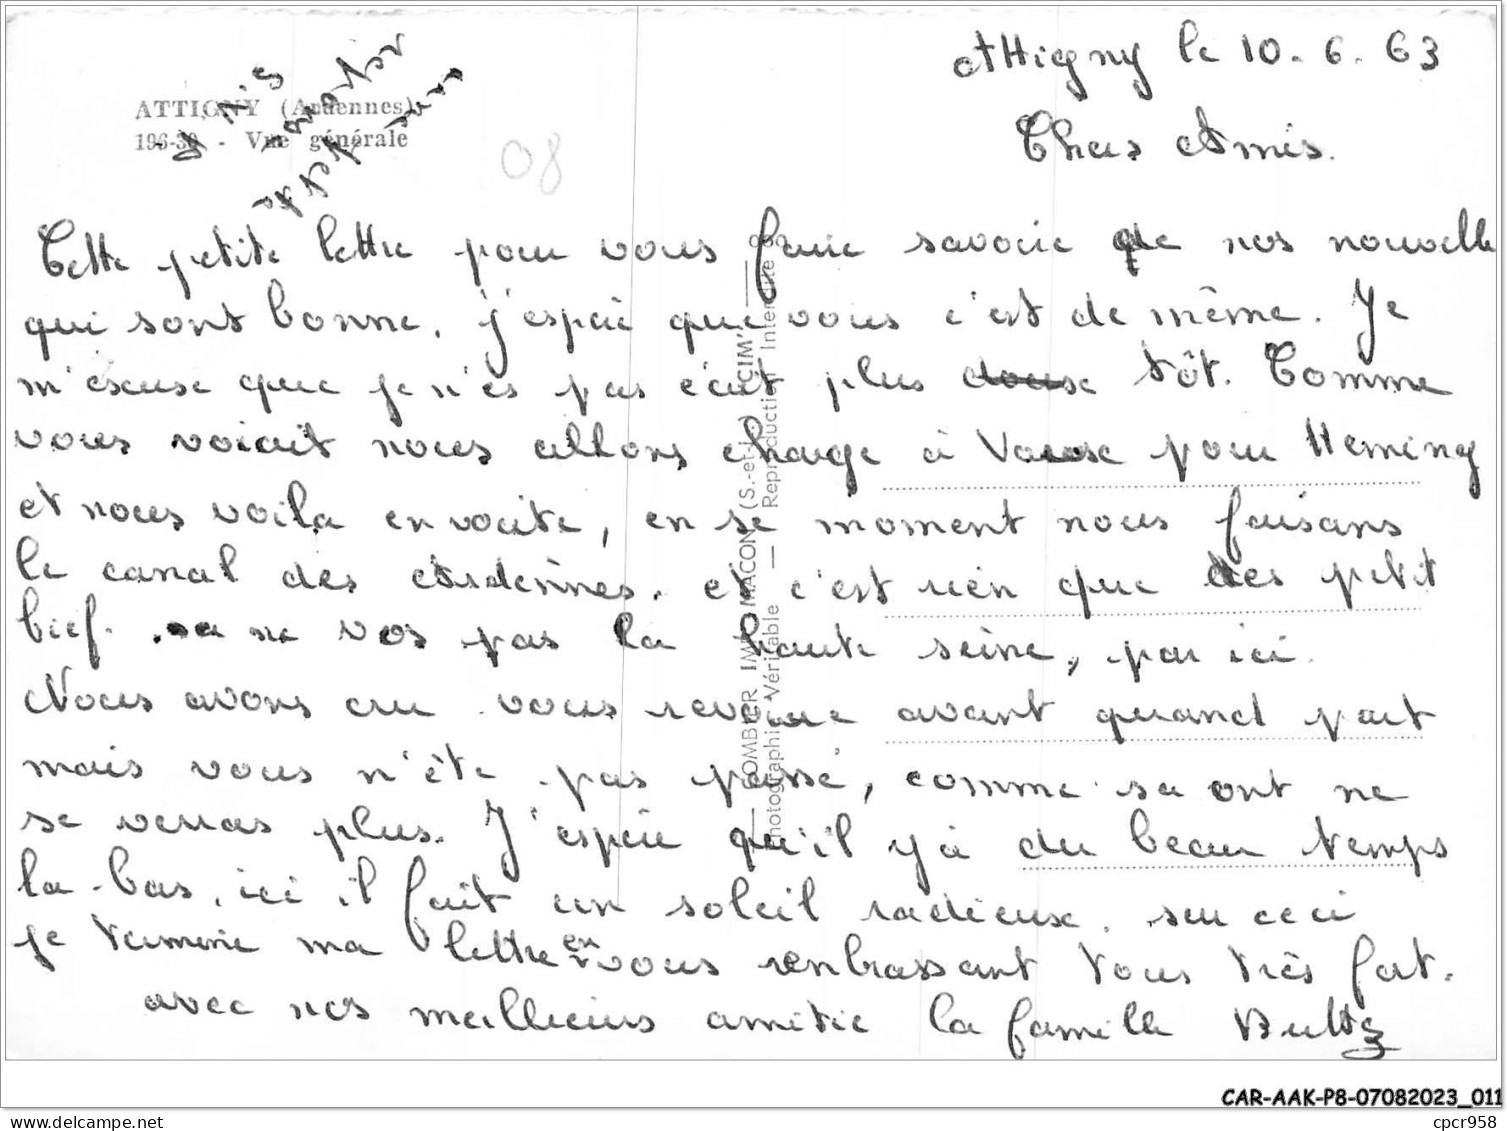 Attigny le 10. 6. 63
ATTIGNY (Ardennes)
196-30 - Vue générale
08
Chers Amis.
Cette petite lettre pour vous faire savoire que nos nouvelle
qui sont bonne, j'espère que vous c'est de même. Je
m'escuse que je n'es pas écrit plus tôt. Comme
vous voiait nous allons charge à pour Heming
et nous voila en voite, en se moment nous faisans
le canal des Ardennes. et c'est rien que des petit
bief. sa ne vos pas la haute seine, par ici.
Nous avons cru vous revoire avant quand part
mais vous n'ête pas passé, comme sa ont ne
se verras plus. J'espère qu'il y à du beau temps
la-bas, ici il fait un soleil radieux. sur ceci
je termine ma lettre en vous renbrassant tous très fort.
avec nos meillieurs amitie la famille
COMBIER IMP. MACON (S.-et-L.) "CIM"
Photographie Véritable — Reproduction Interdite
CAR-AAK-P8-07082023_011
www.delcampe.net
cpcr958